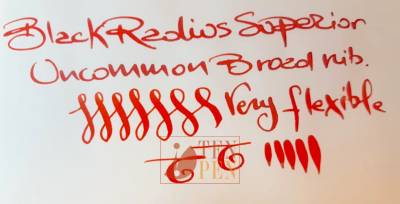 Black Radius Superior
Uncommon Broad nib.
Very flexible
TEN
PEN